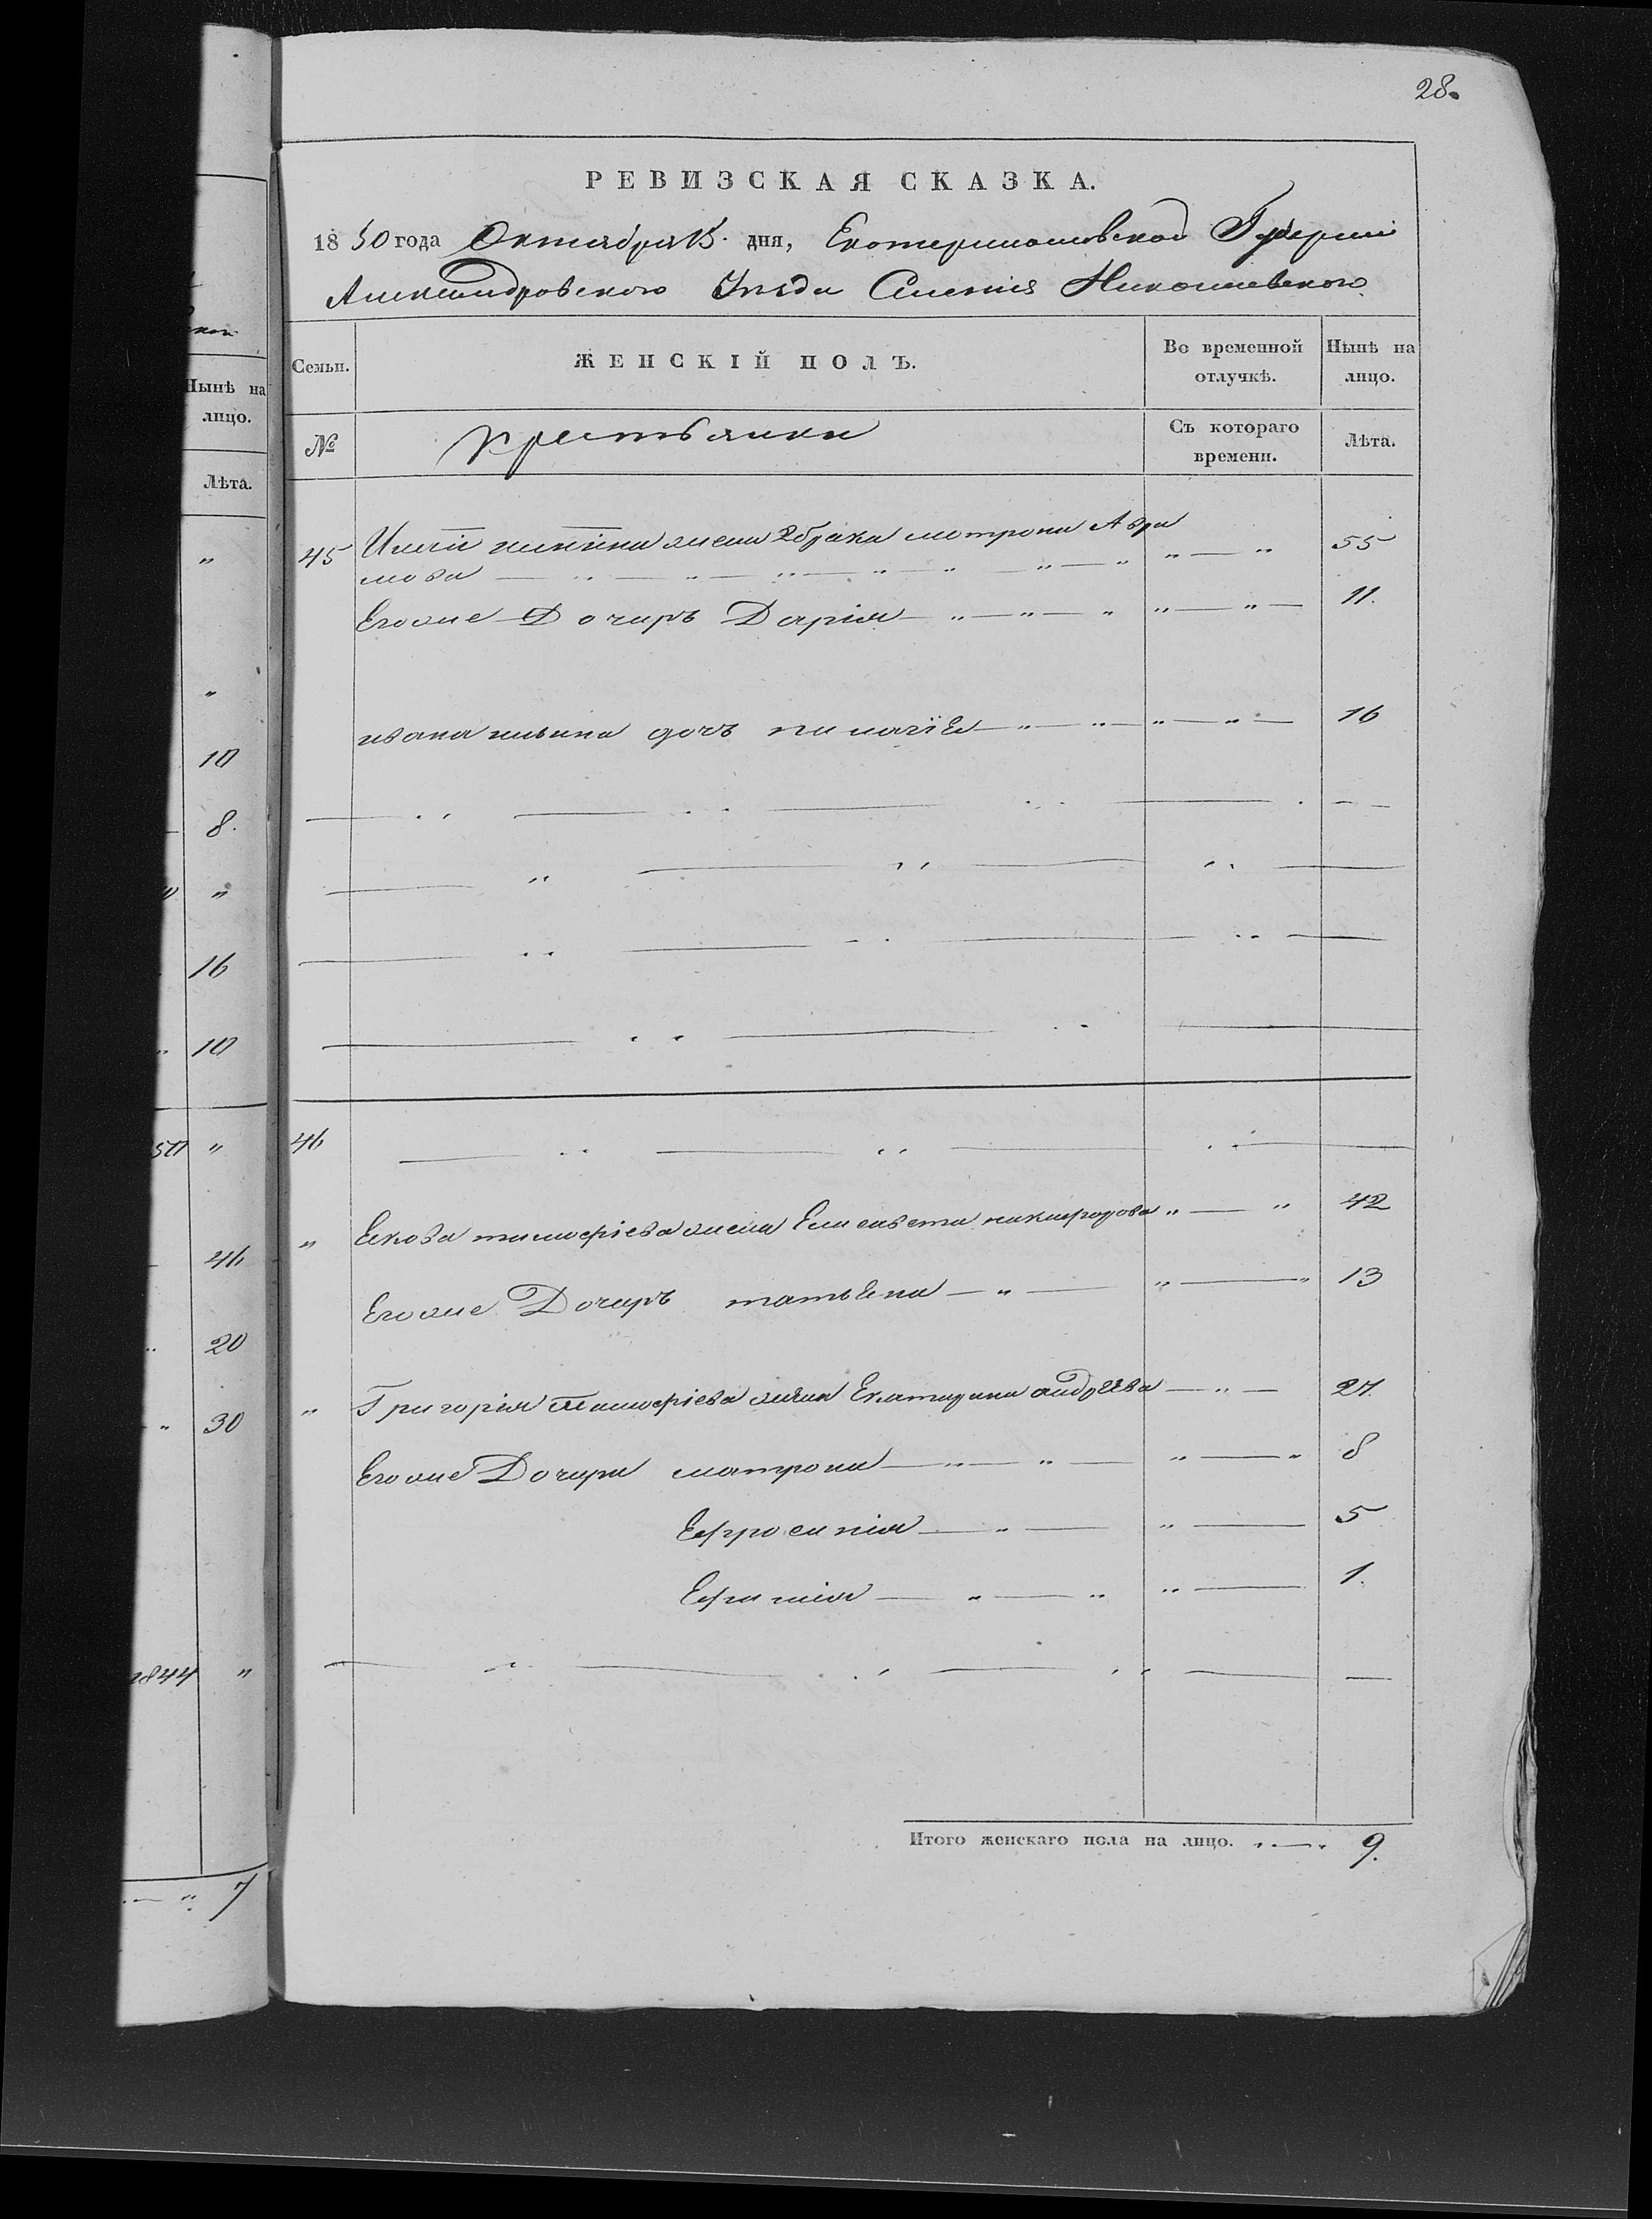 28.
РЕВИЗСКАЯ СКАЗКА.
1850 года Октября 15. дня, Екатеринославской Губернии
Александровского Уезда Селения Николаевского
Семьи.
ЖЕНСКІЙ ПОЛЪ.
Во временной отлучкѣ.
Нынѣ на лицо.
№
крестьянки
Съ котораго времени.
Лѣта.
45 жена 2 брака мотрона Авра
мова 55
Егоже Дочиръ Дарія 11.
ивана ильина дочъ пилагіЕ 16
46
Екова тимофіева жена Елисавета никифорова 42
Егоже Дочиръ татьЕна 13
Григорія Тимофіева жена Екатирина андрЕЕва 27.
Егоже Дочири матрона 8
Ефросинія 5
Ефимія 1.
Итого женскаго пола на лицо. 9.
Нынѣ на
лицо.
Лѣта.
10
8.
16
10
"
46
20
30
1844 "
7